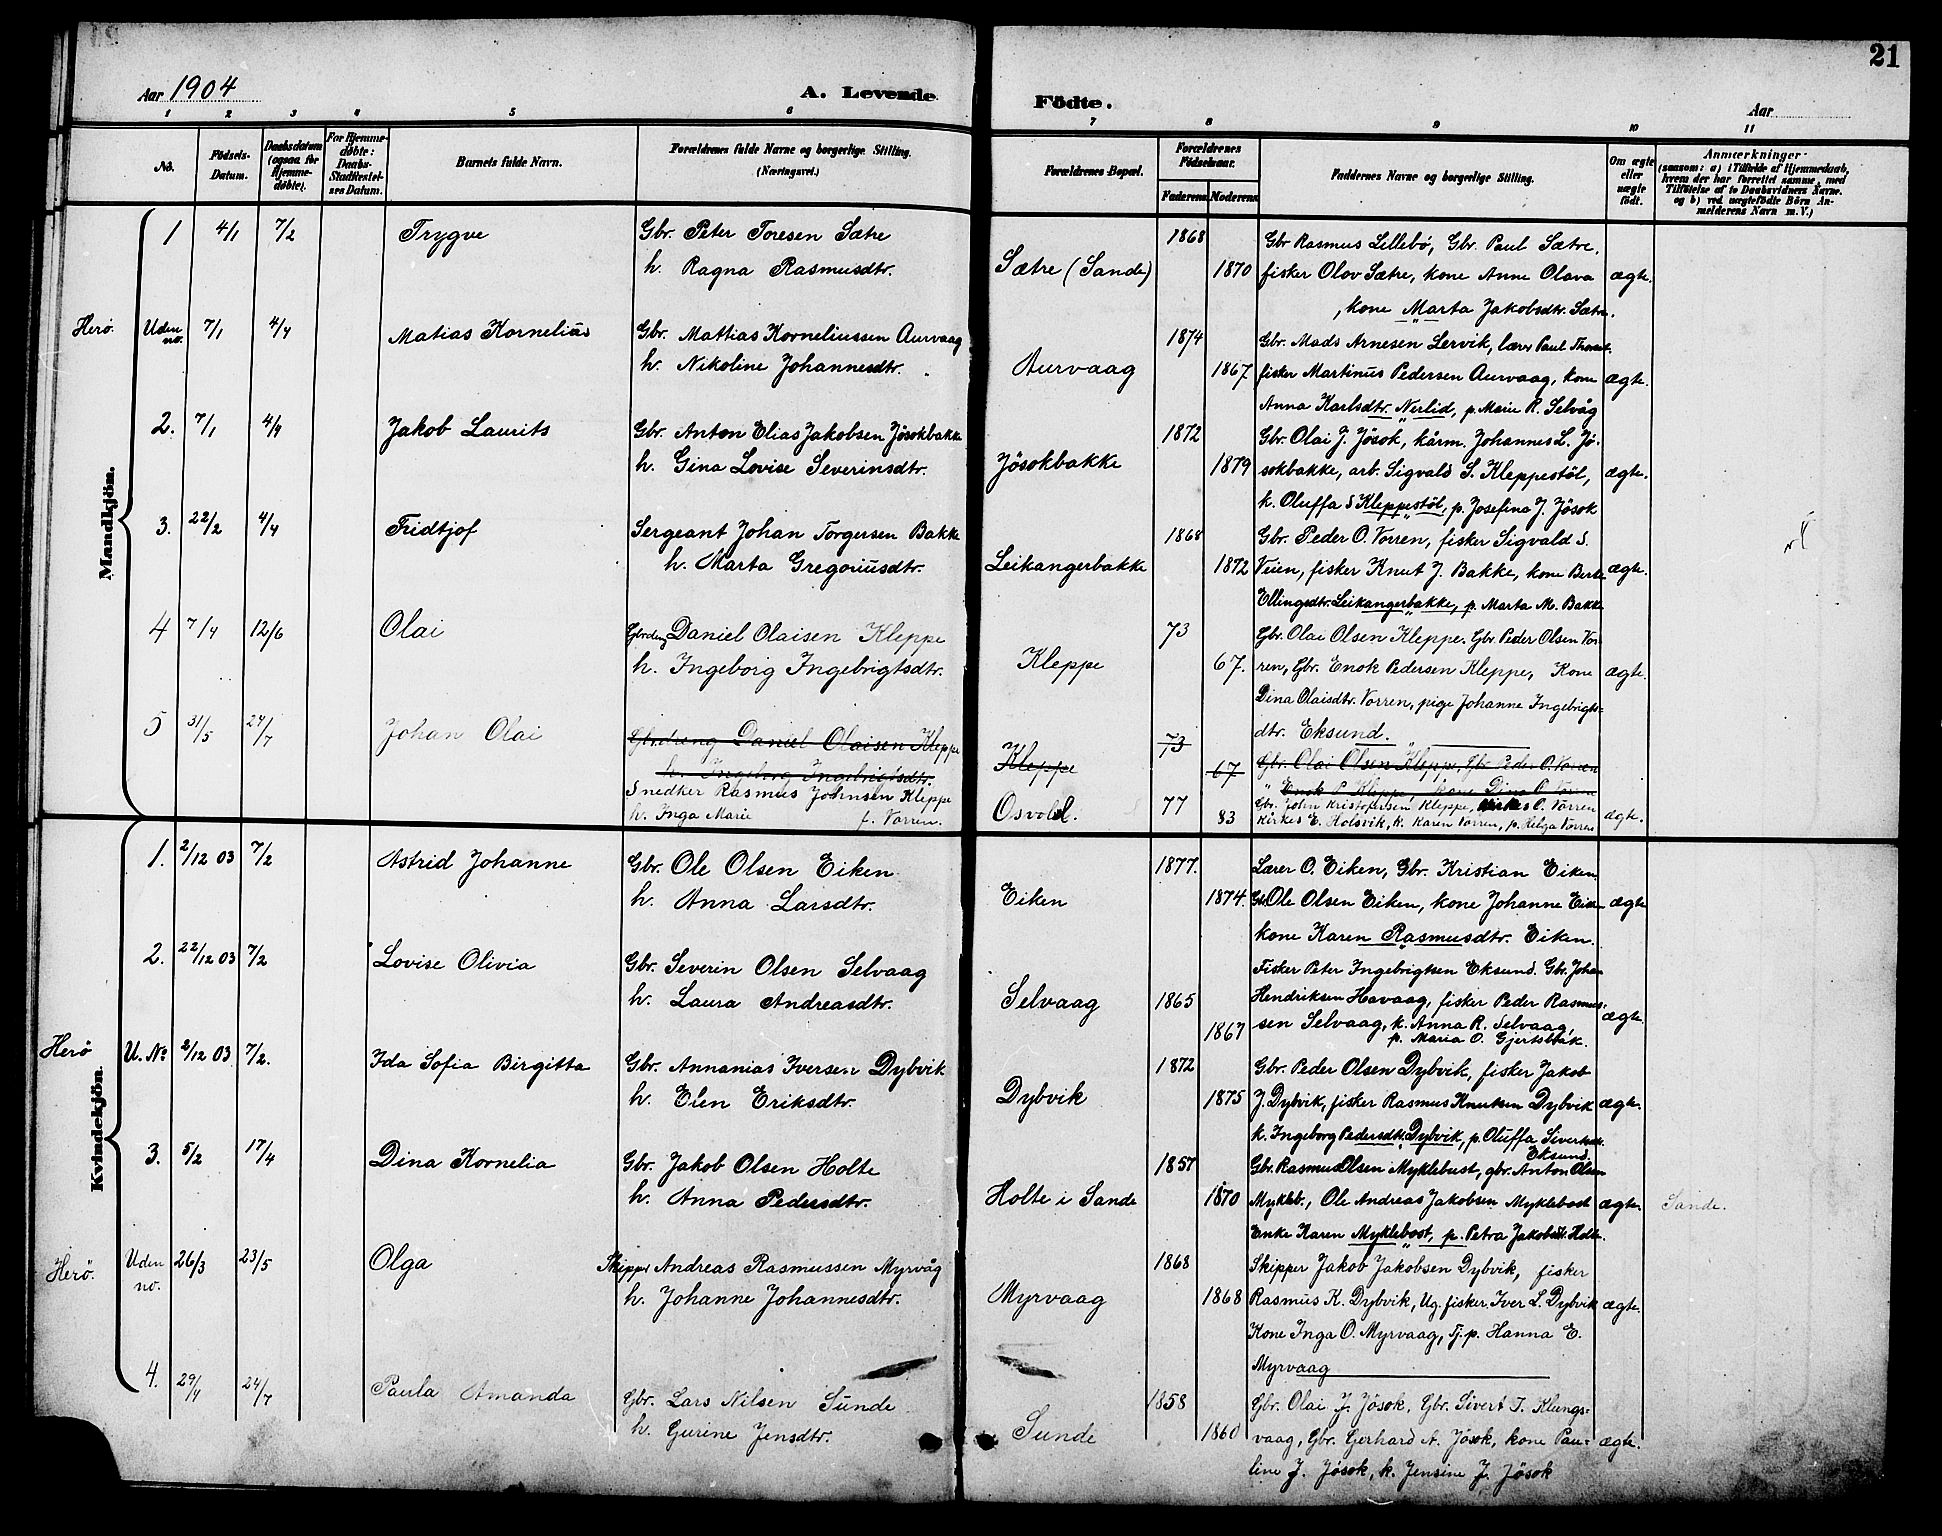 21
Aar 1904
A. Levende
Födte.
Aar
1 2 3 4 5 6 7 8 9 10 11
No.
Födsels-Datum.
Daabsdatum (ogsaa for Hjemmedöbte).
For Hjemmedöbte: Daabs-Stadfæstelses Datum.
Barnets fulde Navn.
Forældrenes fulde Navne og borgerlige Stilling.
(Næringsvei.)
Forældrenes Bopæl.
Forældrenes Födselsaar.
Faderens
Moderens
Faddernes Navne og borgerlige Stilling.
Om ægte eller uægte födt.
Anmærkninger
(saasom: a) i Tilfælde af Hjemmedaab, hvem der har forrettet samme, med Tilföielse af to Daabsvidners Navne. og b) ved uægtefödte Börn Anmelderens Navn m. V.)
Mandkjön.
1 4/1 7/2 Trygve
Gbr. Peter Toresen Sætre
h. Ragna Rasmusdtr.
Sætre (Sande)
1868
1870
Gbr Rasmus Lillebö, Gbr. Paul Sætre,
fisker Olov Sætre, kone Anne Olava
, kone Marta Jakobsdtr. Sætre.
ægte.
Herö. Uden no. 7/1 4/4 Matias Kornelius
Gbr. Mattias Korneliussen Aurvaag
h. Nikoline Johannesdtr.
Aurvaag
1874
1867
Gbr. Mads Arnesen Lervik, lærer Paul
fisker Martinus Pedersen Aurvaag, kone
Anna Karlsdtr. Nerlid, p. Marie R. Selvåg
ægte.
2. 7/1 4/4 Jakob Laurits
Gbr. Anton Elias Jakobsen Jösokbakke
h. Gina Lovise Severinsdtr.
Jösokbakke
1872
1879
Gbr. Olai J. Jösok, kårm. Johannes L. Jö-
sokbakke, arb. Sigvald S. Kleppestöl,
k. Oluffa S Kleppestöl, p. Josefina J. Jösok
ægte.
3. 22/2 4/4 Fridtjof
Sergeant Johan Torgersen Bakke
h. Marta Gregoriusdtr.
Leikangerbakke
1868
1872
Gbr. Peder O. Vorren, fisker Sigvald S.
Veien, fisker Knut J. Bakke, kone Berte
Ellingsdtr. Leikangerbakke, p. Marta M. Bakke
ægte.
4 7/4 12/6 Olai
Gbrdreng Daniel Olaisen Kleppe
h. Ingeborg Ingebrigtsdtr.
Kleppe
73
67.
Gbr. Olai Olsen Kleppe. Gbr. Peder Olsen Vor-
ren, Gbr. Enok Pedersen Kleppe, Kone
Dina Olaisdtr. Vorren, pige Johanne Ingebrigts-
dtr. Eksund.
ægte.
5 31/5 24/7 Johan Olai
Gbrdreng Daniel Olaisen Kleppe
h. Ingeborg Ingebrigtsdtr.
Snedker Rasmus Johnsen Kleppe
h. Inga Marie f. Vorren.
Kleppe
Osvold.
73
67
77
83
Gbr. Olai Olsen Kleppe, Gbr Peder O. Vorren
" Enok P Kleppe, kone Dina O Vorren
Gbr. John Kristofersen Kleppe, O. Vorren
Kirkes E. Holsvik, k. Karen Vorren, p. Helga Vorren
ægte.
Kvindekjön.
1. 2/12 03 7/2 Astrid Johanne
Gbr. Ole Olsen Eiken
h. Anna Larsdtr.
Eiken
1877.
1874.
Lærer O. Eiken, Gbr. Kristian Eiken
Gbr. Ole Olsen Eiken, kone Johanne Eiken
kone Karen Rasmusdtr. Eiken.
ægte
2. 22/12 03 7/2 Lovise Olivia
Gbr. Severin Olsen Selvaag
h. Laura Andreasdtr.
Selvaag
1865
1867
Fisker Peter Ingebrigtsen Eksund. Gbr. Johan
Hendriksen Havaag, fisker Peder Rasmus-
sen Selvaag, k. Anna R. Selvaag,
p. Maria O. Gjertsbak.
ægte.
Herö U. No 2/12 03 7/2. Ida Sofia Birgitta
Gbr. Annanias Iversen Dybvik
h. Elen Eriksdtr.
Dybvik
1872
1875
Gbr. Peder Olsen Dybvik, fisker Jakob
J. Dybvik, fisker Rasmus Knutsen Dybvik
k. Ingeborg Pedersdtr. Dybvik, p. Oluffa Sivertsdt.
Eksund.
ægte.
3. 5/2 17/4 Dina Kornelia
Gbr. Jakob Olsen Holte
h. Anna Pedersdtr.
Holte i Sande
1857
1870
Gbr. Rasmus Olsen Myklebust, gbr. Anton Olsen
Mykleb., Ole Andreas Jakobsen Myklebost
Enke Karen Myklebost, p. Petra Jakobsdt. Holte.
ægte.
Sande.
Herö. Uden no. 26/3 23/5 Olga
Skipper Andreas Rasmussen Myrvåg
h. Johanne Johannesdtr.
Myrvaag
1868
1868
Skipper Jakob Jakobsen Dybvik, fisker
Rasmus K. Dybvik, Ug. fisker Iver L. Dybvik
Kone Inga O. Myrvaag, Tj. p. Hanna E.
Myrvaag
ægte.
4. 29/4 24/7 Paula Amanda
Gbr. Lars Nilsen Sunde
h. Gurine Jensdtr.
Sunde
1858
1860
Gbr. Olai J. Jösok, Gbr. Sivert T. Klungs-
vaag, Gbr. Gerhard A. Jösok, kone Pau-
line J. Jösok, k. Jensine J. Jösok
ægte.